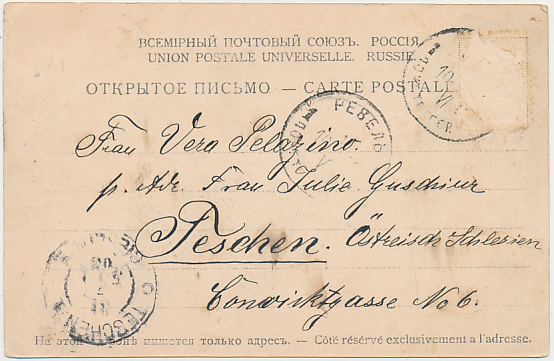 ВСЕМІРНЫЙ ПОЧТОВЫЙ СОЮЗЪ. РОССІЯ.
UNION POSTALE UNIVERSELLE. RUSSIE.
ОТКРЫТОЕ ПИСЬМО — CARTE POSTALE
РЕВЕЛЬ
Frau Vera Pelazino.
p. Adr. Frau Julie Guschiur
Teschen. Östreisch Schlesien
Conwiktgasse No 6.
TESCHEN
На этой сторонѣ пишется только адресъ. — Côté réservé exclusivement a l'adresse.